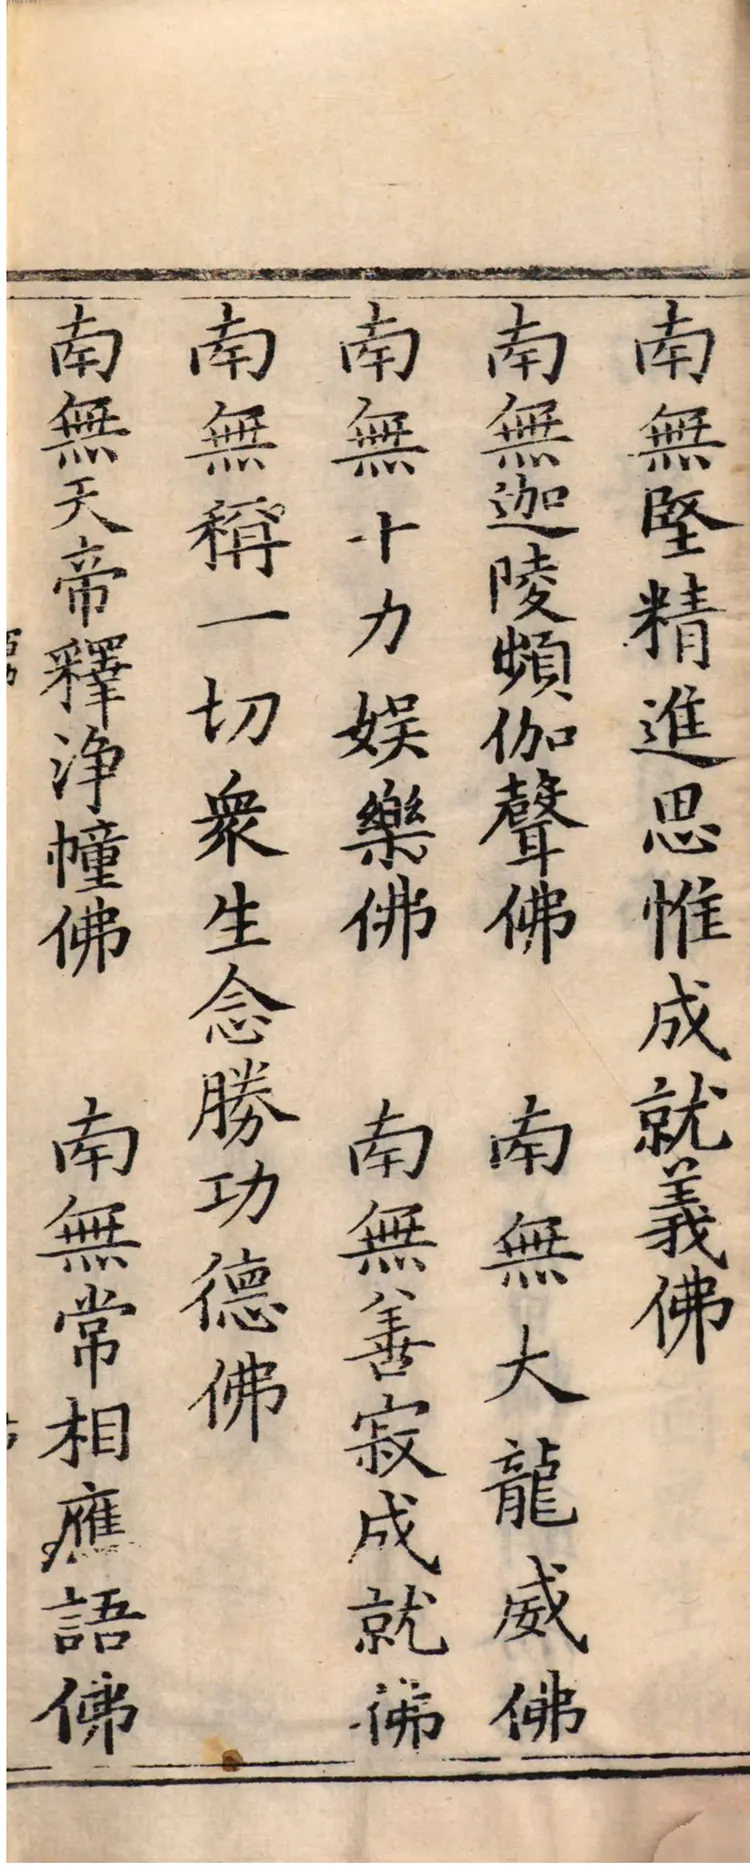 南無堅精進思惟成就義佛
南無迦陵頻伽聲佛　南無大龍威佛
南無十力娛樂佛　南無善寂成就佛
南無稱一切衆生念勝功德佛
南無天帝釋淨幢佛　南無常相應語佛